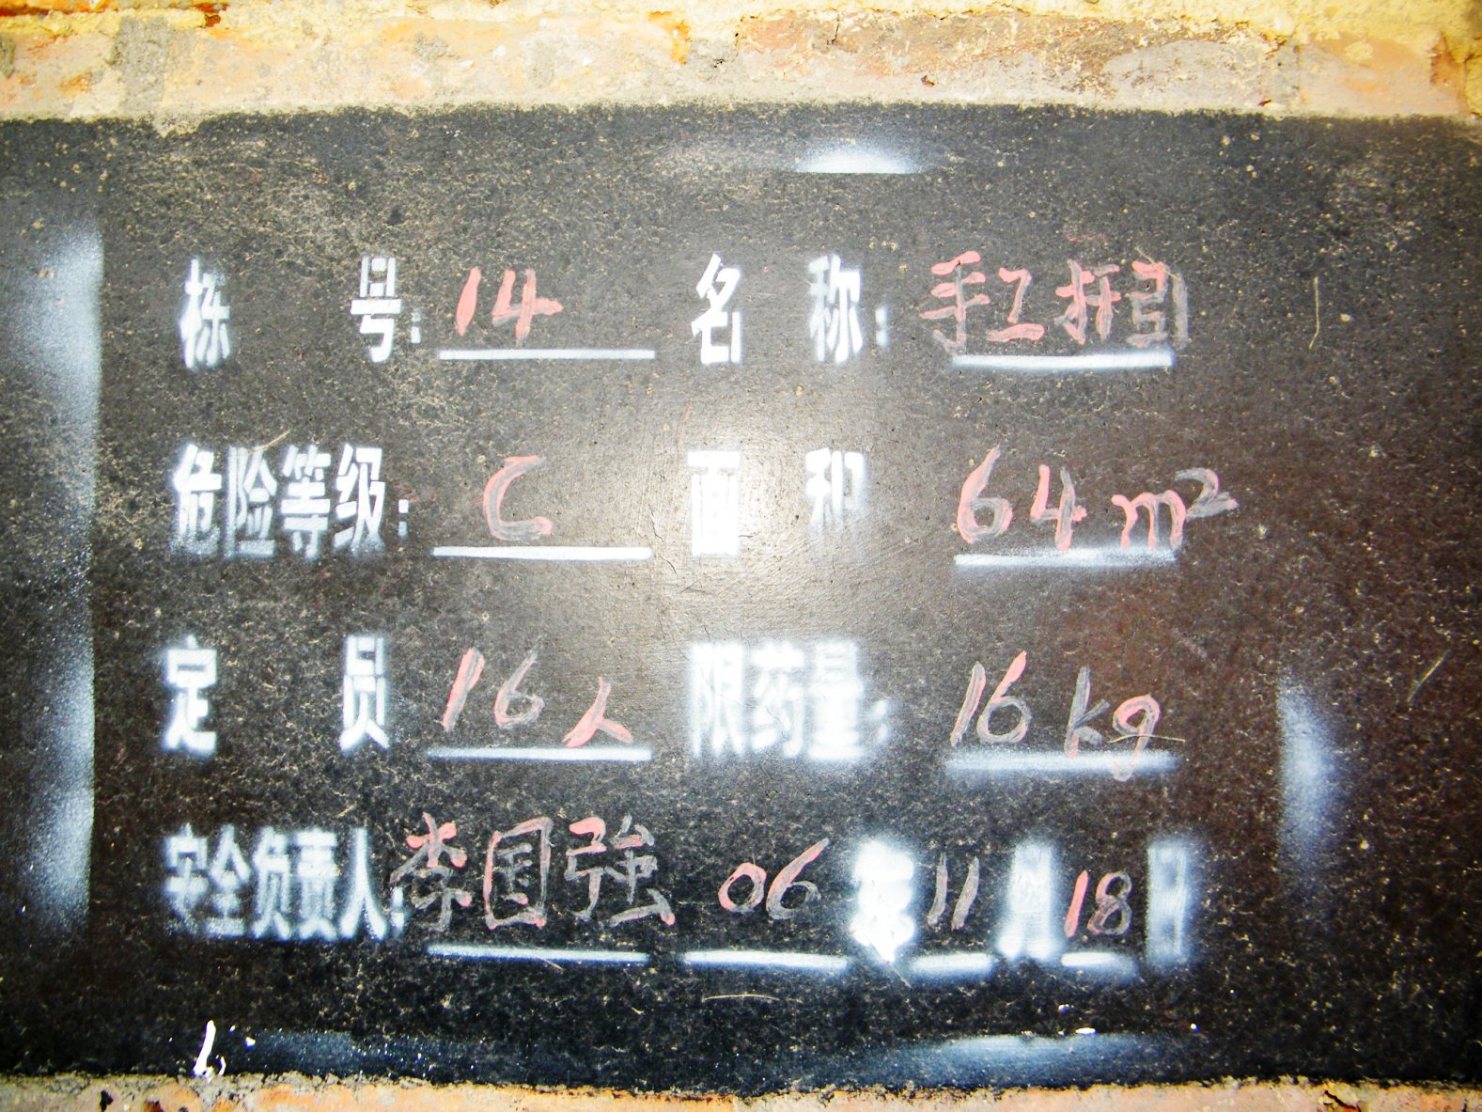 栋号：14 名称：手工扦引
危险等级：C 面积 64 m²
定员 16人 限药量：16 kg
安全负责人：李国強 06年11月18日